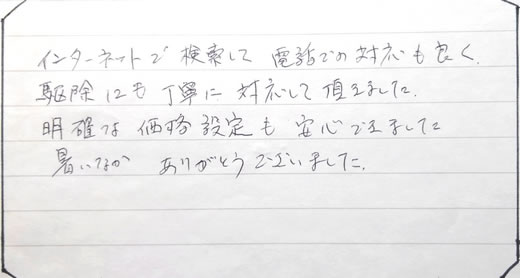 インターネットで 検索して 電話での対応も良く.
駆除にも 丁寧に 対応して頂きました.
明確な 価格設定も 安心できました
暑いなか ありがとうございました.